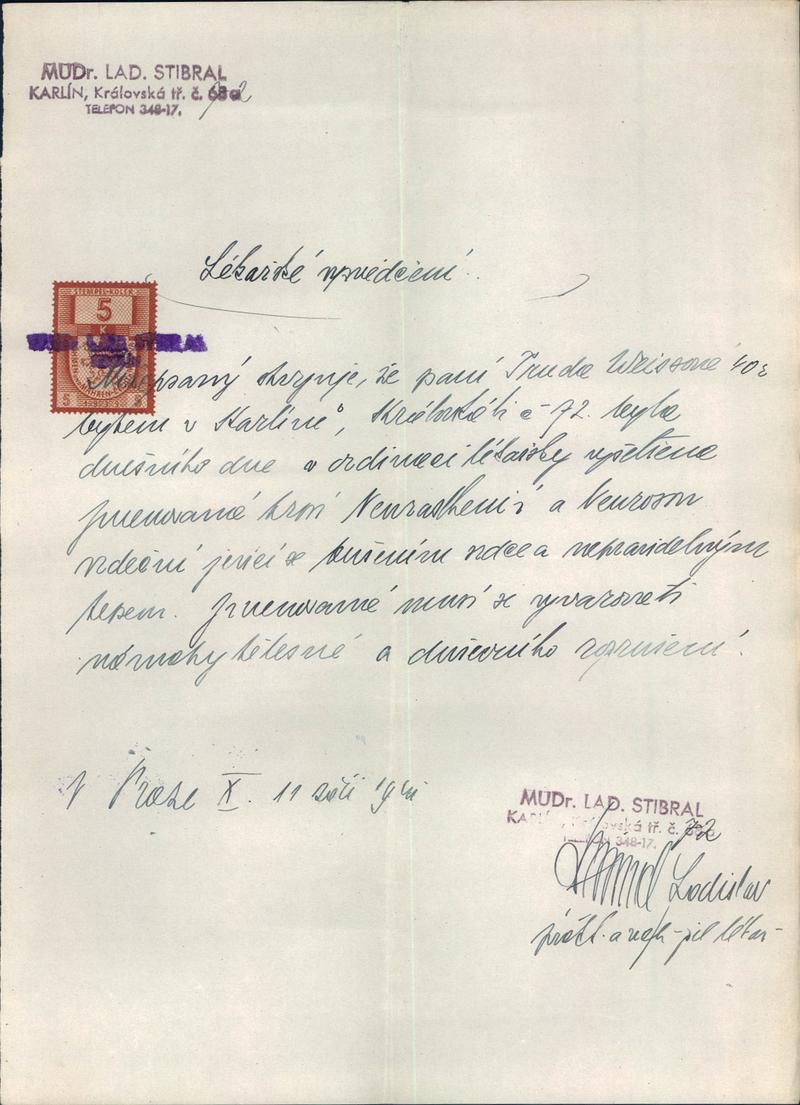 MUDr. LAD. STIBRAL
KARLÍN, Královská tř. č. 68a 72
TELEFON 348-17.
Lékařské vysvědčení.
STEMPEL-KOLEK
5
K
5
MUDr. LAD. STIBRAL
psaný stvrzuje, že paní Truda Weissová 40
bytem v Karlíně, Královská tř č 72. byla
dnešního dne v ordinaci lékařsky vyšetřena
Jmenovaná trpí Neurasthenií a Neurosou
srdeční jevící se bušením srdce a nepravidelným
tepem. Jmenovaná musí se vyvarovati
námahy tělesné a duševního rozrušení.
V Praze X. 11 září
MUDr. LAD. STIBRAL
KARLÍN, Královská tř. č. 72
TELEFON 348-17.
Ladislav
prakt. a lékař